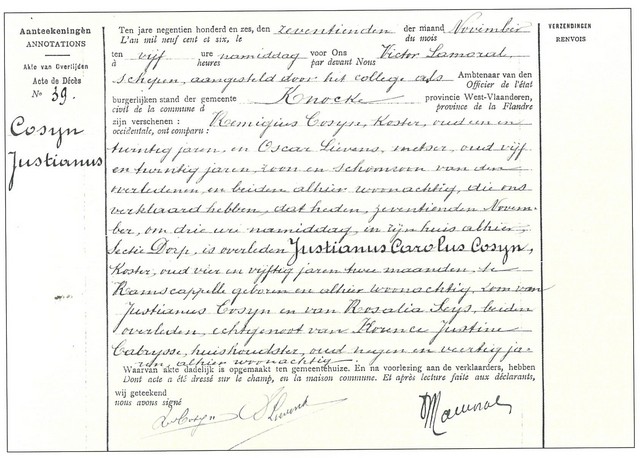 Aanteekeningen
ANNOTATIONS
Akte van Overlijden
Acte de Décès
No 39.
Cosyn
Justianus
VERZENDINGEN
RENVOIS
Ten jare negentien honderd en zes, den zeventienden der maand November
L'an mil neuf cent et six, le du mois
ten vijf ure namiddag voor Ons Victor Lamoral
à heures par devant Nous
schepen, aangesteld door het college als Ambtenaar van den
Officier de l'état
burgerlijken stand der gemeente Knocke provincie West-Vlaanderen,
civil de la commune d province de la Flandre
zijn verschenen: Remigius Cosyn, Koster, oud een en
occidentale, ont comparu:
twintig jaren, en Oscar Lievens, metser, oud vijf
en twintig jaren, zoon en schoonzoon van den
overledenen, en beiden alhier woonachtig, die ons
verklaard hebben, dat heden, zeventienden Novem-
ber, om drie ure namiddag, in zijn huis alhier,
Sectie Dorp, is overleden Justianus Carolus Cosyn,
Koster, oud vier en vijftig jaren twee maanden, te
Ramscappelle geboren en alhier woonachtig, zoon van
Justianus Cosyn en van Rosalia Seys, beiden
overleden, echtgenoot van Florence Justine
Cabrysse, huishoudster, oud negen en veertig ja-
ren, alhier woonachtig.
Waarvan akte dadelijk is opgemaakt ten gemeentehuize. En na voorlezing aan de verklaarders, hebben
Dont acte a été dressé sur le champ, en la maison commune. Et après lecture faite aux déclarants,
wij geteekend
nous avons signé
R. Cosyn O. Lievens Lamoral